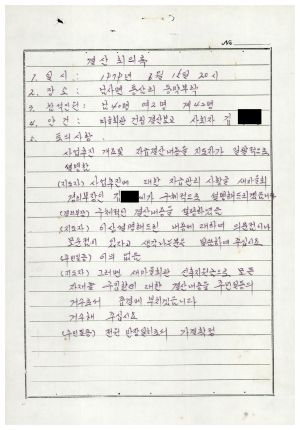 No.
결산 회의록
1. 일시 : 1979년 8월 15일 20시
2. 장소 : 남사면
3. 참석인원 : 남 40명 여 2명 계 42명
4. 안건 : 마을회관 건립 결산보고 사회자 김
5. 토의사항
사업추진 개요및 자금결산내용을 지도자가 일괄적으로
설명한
(지도자) 사업추진에 대한 자금관의 사항을 새마을회
경리부장인 김 씨가 구체적으로 설명해드리겠습니다
(경리부장) 구체적인 결산내용을 설명하였음
(지도자) 이상설명해드린 내용에 대하여 의문점이나
모순점이 있다고 생각하는분은 말씀하여 주십시요
(주민일동) 이의 없음
(지도자) 그러면 새마을회관 신축지원금으로 모든
자재를 구입함에 대한 결산내용을 주민일동의
거수로서 표결에 부치겠읍니다
거수해 주십시요
(주민일동) 전원 만장일치로서 가결확정